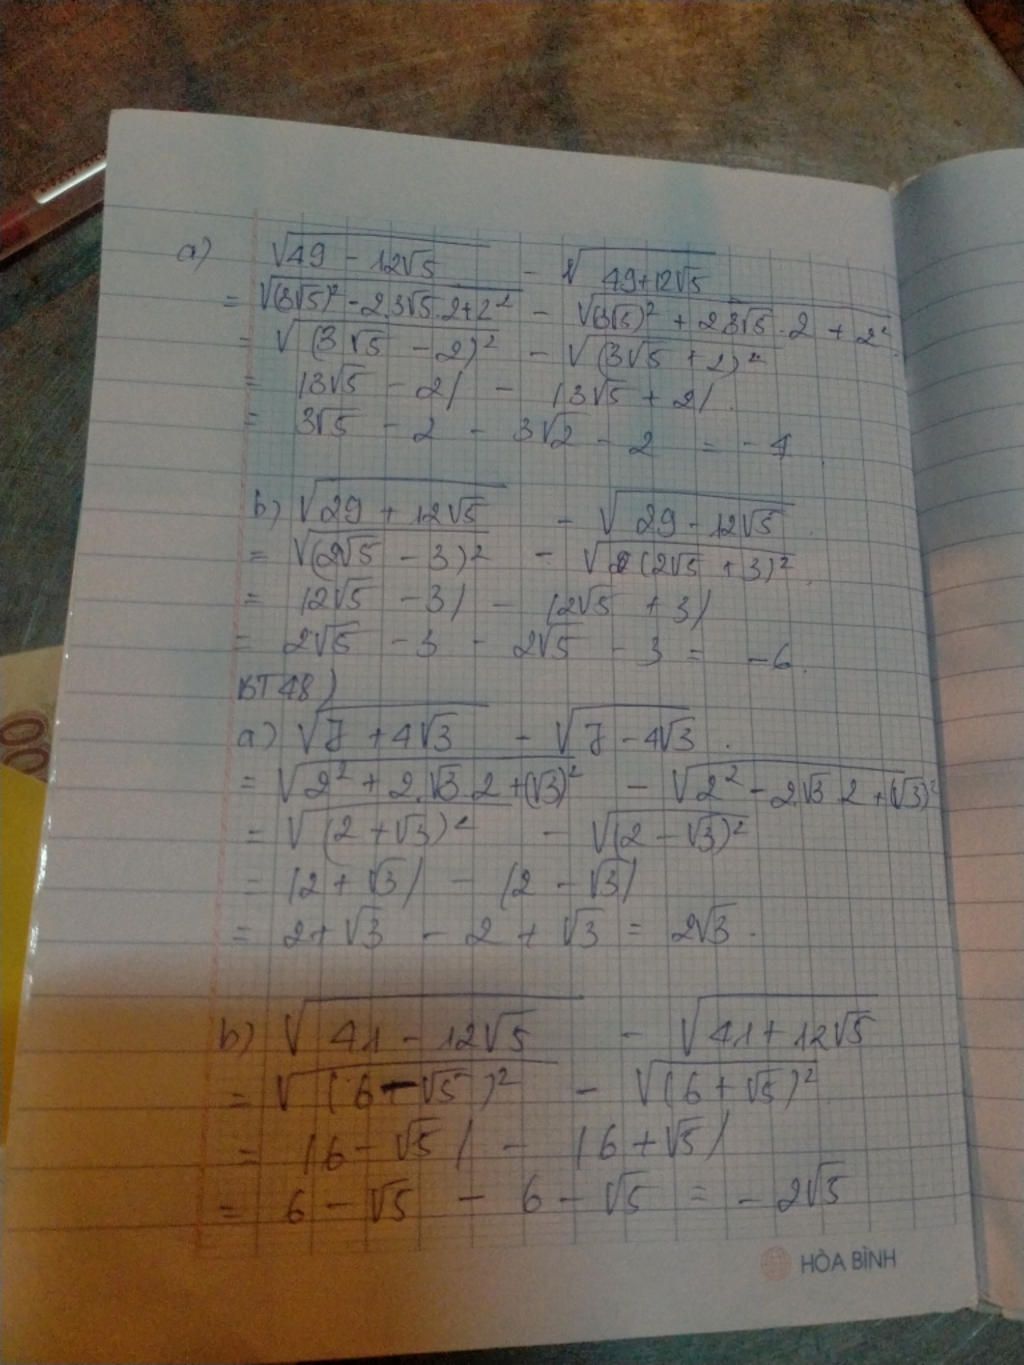 a) √49 - 12√5 - √49+12√5
= √(3√5)² - 2.3√5.2+2² - √(3√5)² + 2.3√5.2 + 2²
= √(3√5 - 2)² - √(3√5 + 2)²
= |3√5 - 2| - |3√5 + 2|.
= 3√5 - 2 - 3√2 - 2 = -4
b) √29 + 12√5 - √29 - 12√5
= √(2√5 - 3)² - √(2√5 + 3)²
= |2√5 - 3| - |2√5 + 3|
= 2√5 - 3 - 2√5 - 3 = -6.
BT48)
a) √7 + 4√3 - √7 - 4√3.
= √2² + 2.√3.2 + (√3)² - √2² - 2.√3 2 + (√3)²
= √(2 + √3)² - √(2 - √3)²
= |2 + √3| - |2 - √3|
= 2 + √3 - 2 + √3 = 2√3.
b) √41 - 12√5 - √41 + 12√5
= √(6 - √5)² - √(6 + √5)²
= |6 - √5| - |6 + √5|
= 6 - √5 - 6 - √5 = - 2√5
HÒA BÌNH